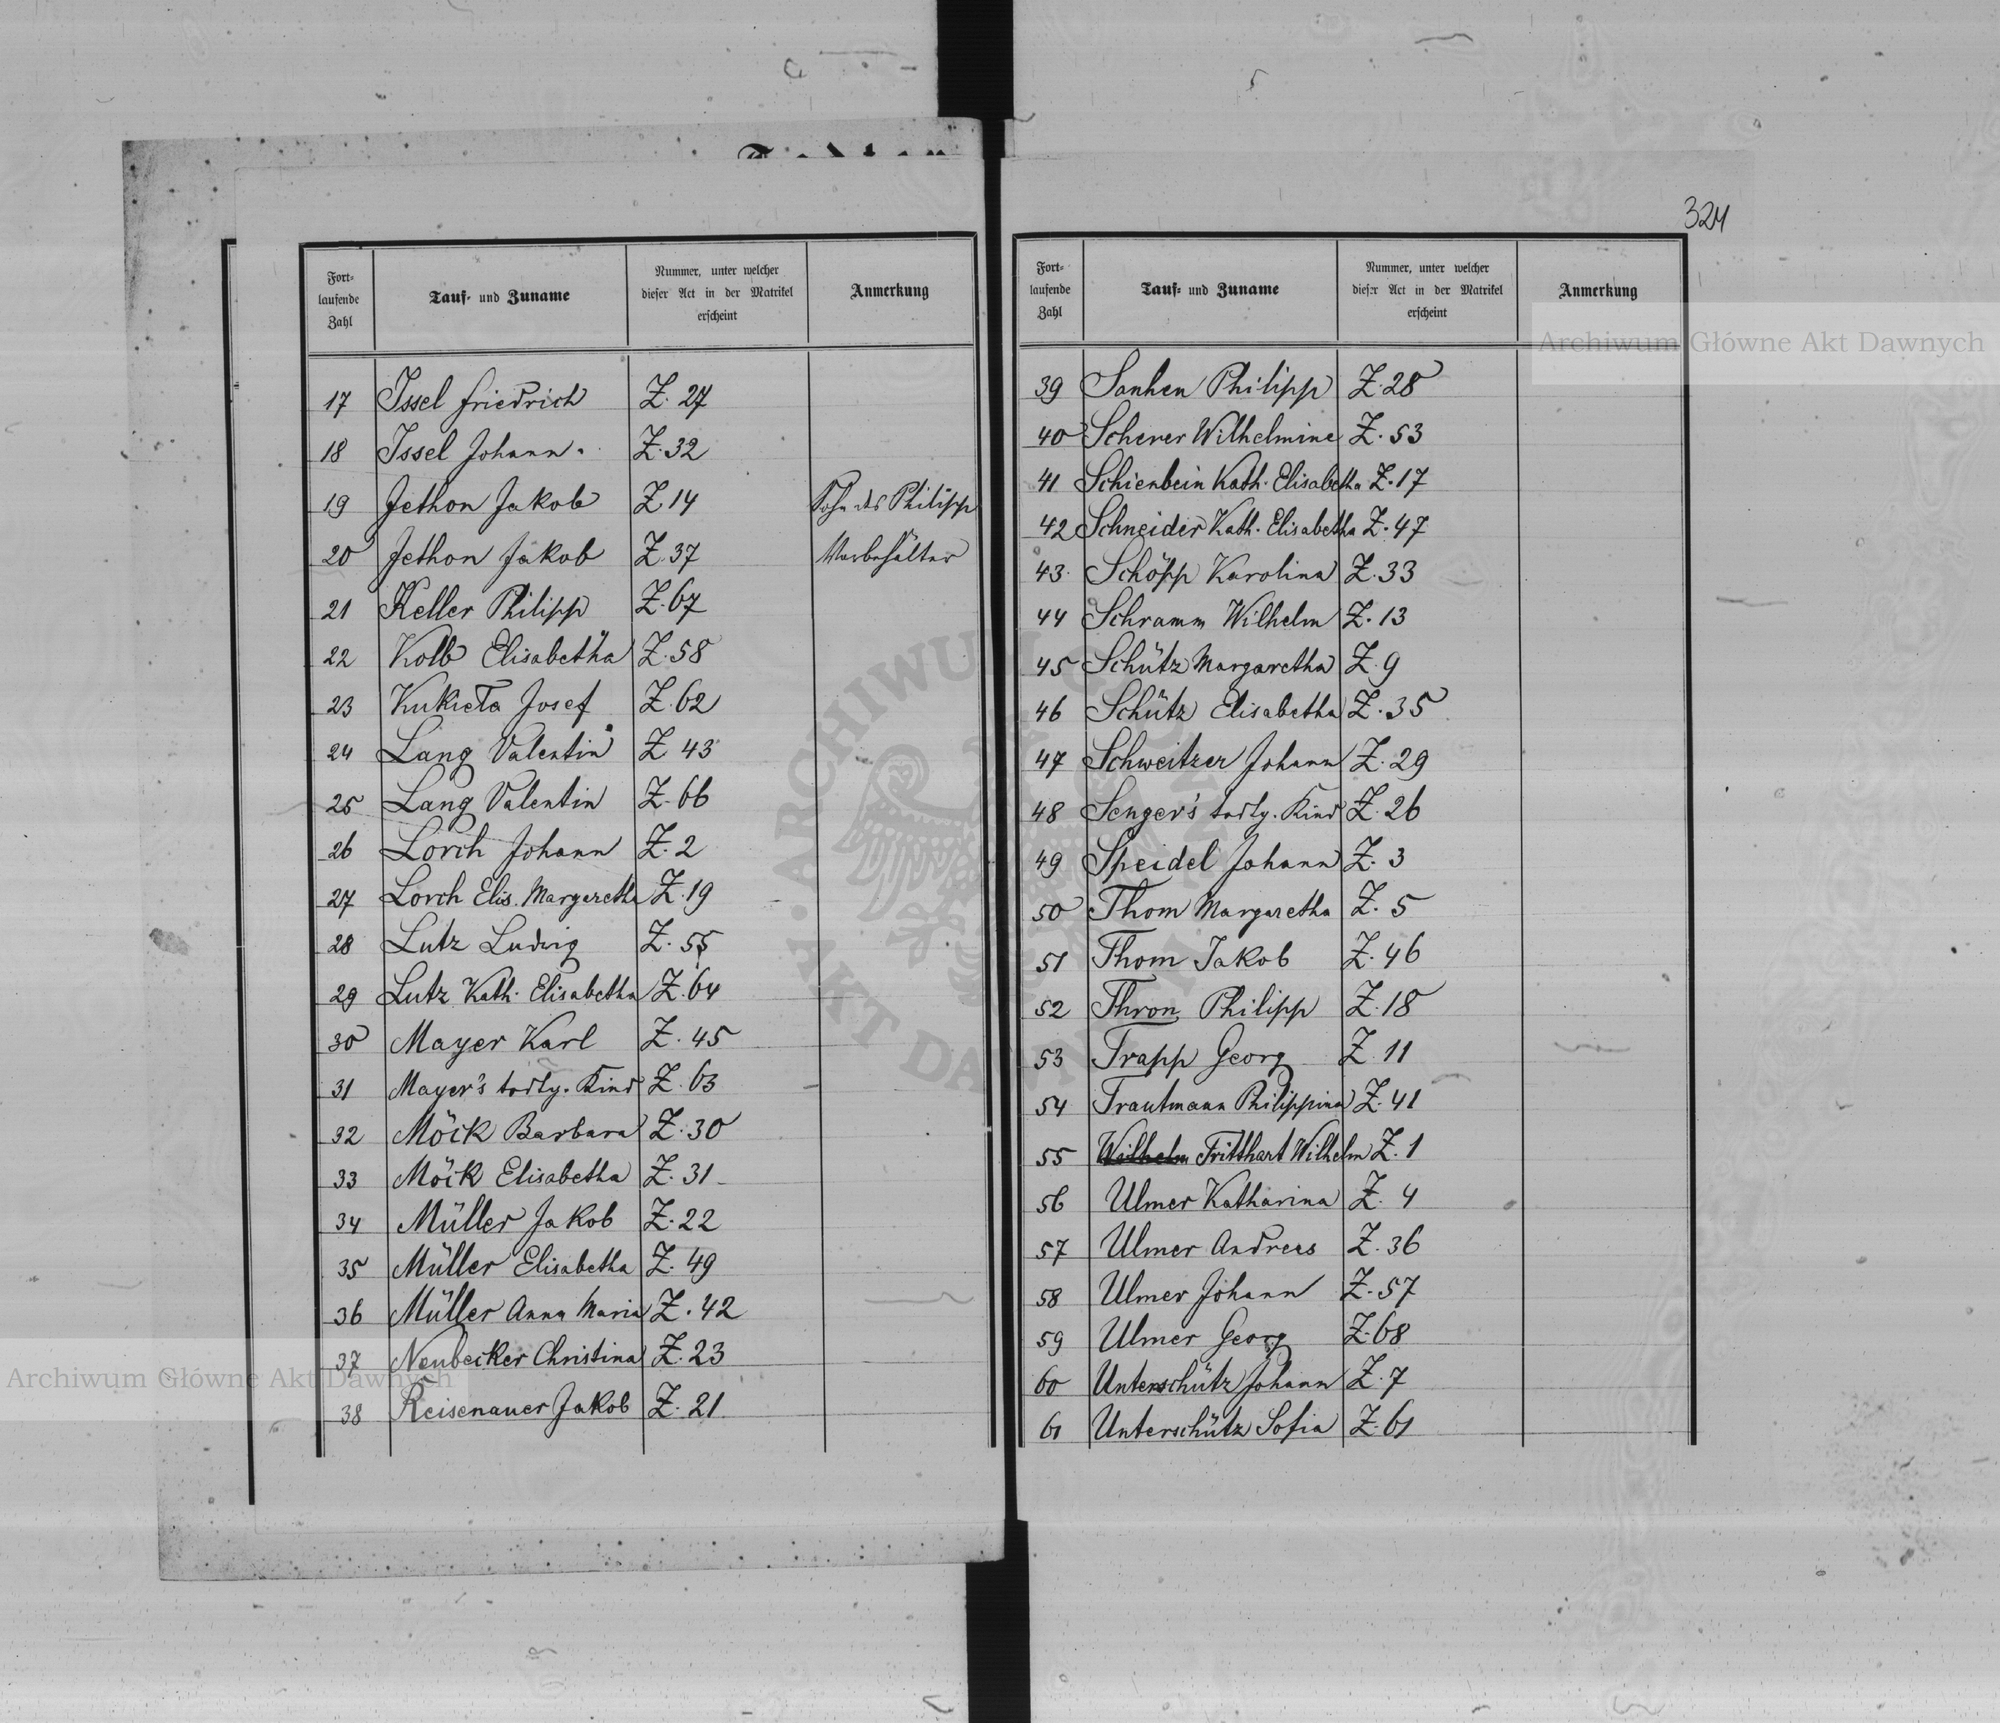 324
Fort-
laufende
Zahl
Tauf- und Zuname
Nummer, unter welcher
dieser Act in der Matrikel
erscheint
Anmerkung
17 Issel Friedrich Z. 27
18 Issel Johann Z. 32
19 Jethon Jakob Z 14 Sohn des Philipp
20 Jethon Jakob Z. 37 Vorbehälter
21 Keller Philipp Z. 67
22 Kolb Elisabetha Z. 58
23 Kukieta Josef Z. 62
24 Lang Valentin Z 43
25 Lang Valentin Z. 66
26 Lorch Johann Z. 2
27 Lorch Elis. Margaretha Z. 19
28 Lutz Ludwig Z. 55
29 Lutz Kath. Elisabetha Z. 64
30 Mayer Karl Z. 45
31 Mayer's todtg. Kind Z. 63
32 Möck Barbara Z. 30
33 Möck Elisabetha Z. 31
34 Müller Jakob Z. 22
35 Müller Elisabetha Z. 49
36 Müller Anna Maria Z. 42
37 Neubecker Christina Z. 23
38 Reisenauer Jakob Z. 21
Fort-
laufende
Zahl
Tauf- und Zuname
Nummer, unter welcher
dieser Act in der Matrikel
erscheint
Anmerkung
39 Sanhen Philipp Z. 28
40 Scherer Wilhelmine Z. 53
41 Schienbein Kath. Elisabetha Z. 17
42 Schneider Kath. Elisabetha Z. 47
43. Schöpp Karolina Z. 33
44 Schramm Wilhelm Z. 13
45 Schütz Margaretha Z. 9
46 Schütz Elisabetha Z. 35
47 Schweitzer Johann Z. 29
48 Senger's todtg. Kind Z. 26
49 Speidel Johann Z. 3
50 Thom Margaretha Z. 5
51 Thom Jakob Z. 46
52 Thron Philipp Z. 18
53 Trapp Georg Z. 11
54 Trautmann Philippina Z. 41
55 Wilhelm Tritthart Wilhelm Z. 1
56 Ulmer Katharina Z. 4
57 Ulmer Andreas Z. 36
58 Ulmer Johann Z. 57
59 Ulmer Georg Z. 68
60 Unterschütz Johann Z. 7
61 Unterschütz Sofia Z. 61
Archiwum Główne Akt Dawnych
Archiwum Główne Akt Dawnych